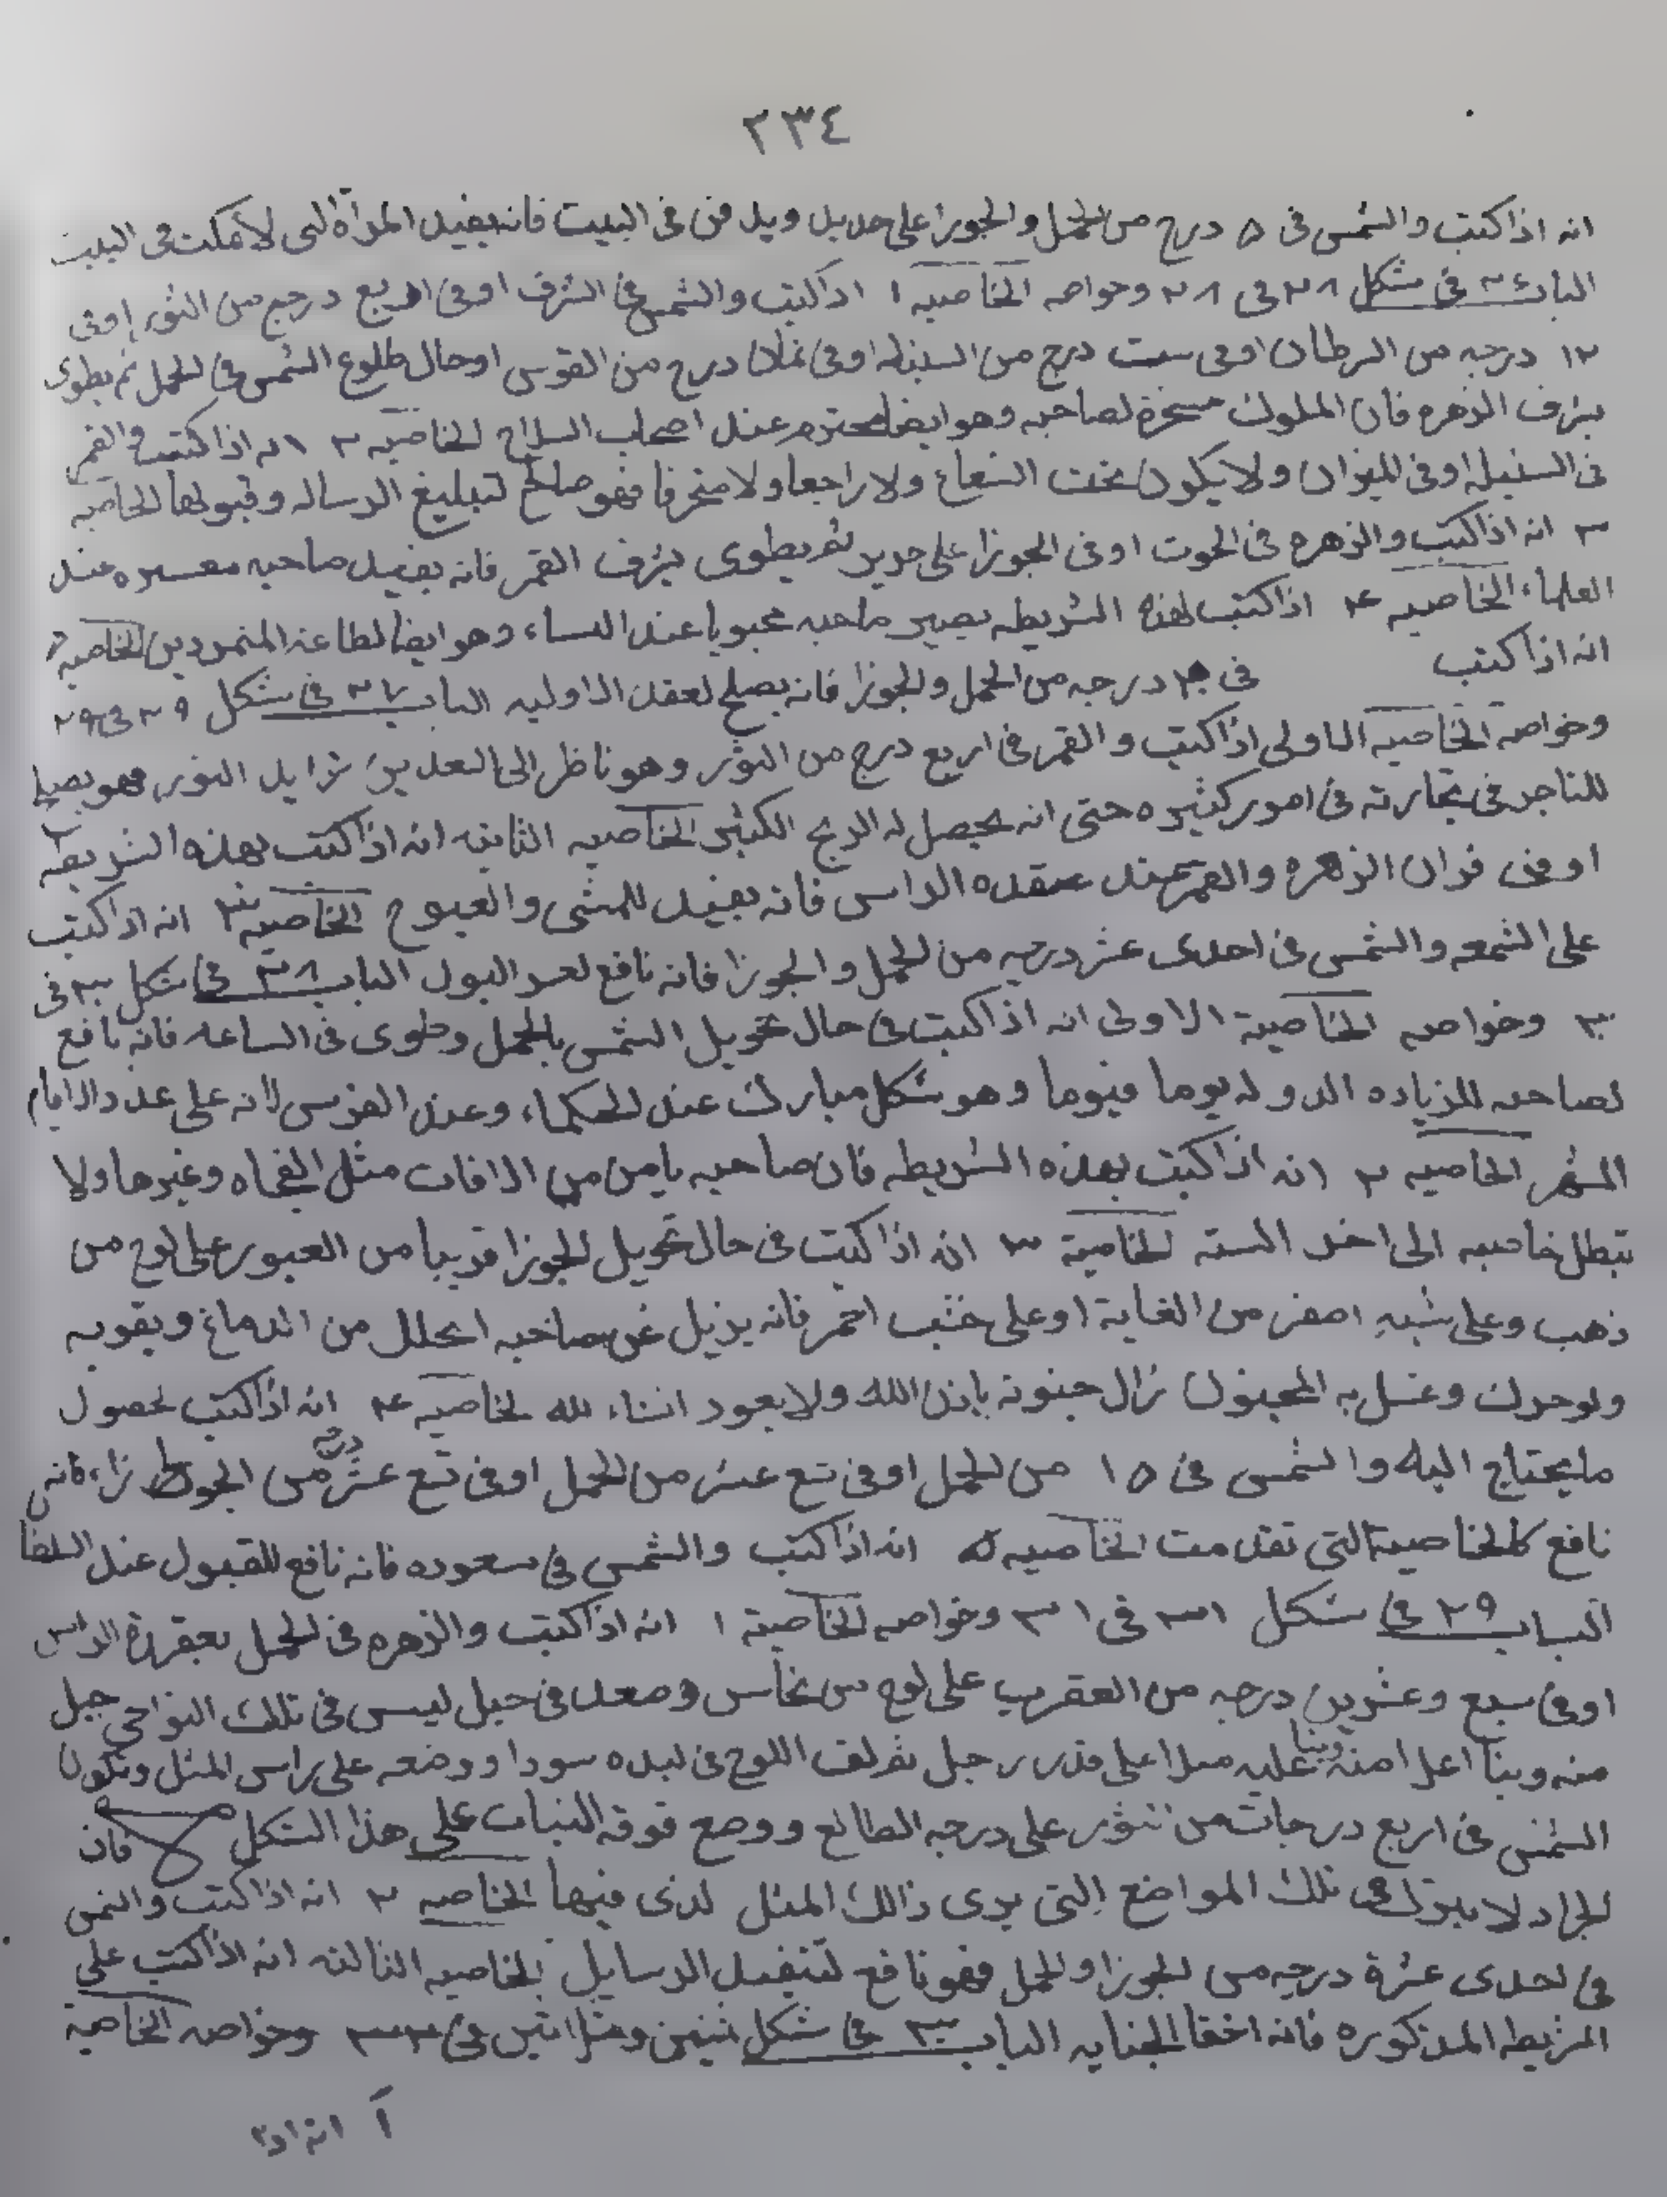 ٢٣٤
انه اذا كتب والشمس فى ٥ درج من الحمل والجوزا على حديد ويدفن فى البيت فانه يفيد المراة التى لا تمكث فى البيت
الباب فى شكل ٢٨ فى ٢٨ وخواصه الخاصيه ١ اذا كتب والشمس فى الشرف اوفى اربع درج من الثور اوفى
١٢ درجه من السرطان اوفى ست درج من السنبله اوفى ثلاث درج من القوس اوحال طلوع الشمس فى الحمل ثم يطوى
بشرف الزهره فان الملوك مسخرة لصاحبه وهو ايضا محترم عند اصحاب السلاح الخاصيه ٢ انه اذا كتب والقمر
فى السنبله اوفى الميزان ولا يكون تحت الشعاع ولا راجعا ولا منحرفا فهو صالح لتبليغ الرساله وقبولها الخاصيه
٣ انه اذا كتب والزهره فى الحوت اوفى الجوزا على حرير ثم يطوى بشرف القمر فانه يفيد صاحبه عند
العلماء الخاصيه ٤ اذا كتب لهذه الشريطه يصير صاحبه محبوبا عند النساء وهو ايضا لطاعة المتمردين الخاصيه
انه اذا كتب فى درجه من الحمل والجوزا فانه يصلح لعقد الباب فى شكل ٢٩ فى ٢٩
وخواصه الخاصيه الاولى اذا كتب والقمر فى اربع درج من الثور وهو ناظر الى السعدين تزايد النور فهو يصلح
للتاجر فى تجارته فى امور كثيره حتى انه يحصل له الربح الكثير الخاصيه الثانيه انه اذا كتب بهذه الشريطه
اوفى قران الزهره والقمر عند عقده الراس فانه يفيد للمشى والخاصيه ٣ انه اذا كتب
على الشمعه والشمس فى احدى عشر درجه من الحمل والجوزا فانه نافع لعسر البول الباب ٢٨ فى شكل ٣٠ فى
٣٠ وخواصه الخاصية الاولى انه اذا كتبت فى حال تحويل الشمس بالحمل وطوى فى الساعه فانه نافع
لصاحبه للزياده الدوله يوما فيوما وهو شكل مبارك عند الحكماء وعند الفرس لانه على عدد الايام
الشهر الخاصيه ٢ انه اذا كتبت بهذه الشريطه فان صاحبه يامن من الافات مثل الفجاه وغيرها ولا
تبطل خاصيه الى اخر السنه الخاصية ٣ انه اذا كتبت فى حال تحويل الجوزا قريبا من العبور على لوح من
ذهب وعلى شبه اصفر من الغاية اوعلى خشب احمر فانه يزيل عن صاحبه الخلل من الدماغ ويقويه
وغسل به المجنون زال جنونه باذن الله ولا يعود انشاء الله الخاصيه ٤ انه اذا كتب لحصول
ما يحتاج اليه والشمس فى ١٥ من الحمل اوفى تسع عشر من الحمل اوفى تسع عشر درجه من فانه
نافع كالخاصية التى تقدمت الخاصيه ٥ انه اذا كتب والشمس فى سعوده فانه نافع للقبول عند السلطا
الباب ٢٩ فى شكل ٣١ فى ٣١ وخواصه الخاصية ١ انه اذا كتب والزهره فى الحمل بعقدة الراس
اوفى سبع وعشرين درجه من العقرب على لوح من نحاس وصعد فى جبل ليس فى تلك النواحى جبل
منه وبنا عليه على قدر رجل ثم لف اللوح فى لبده سودا ووضعه على راس المثل وتكون
الشمس فى اربع درجات من ثور على درجه الطالع ووضع فوقه النبات على هذا الشكل فان
الجراد لا يترك فى تلك المواضع التى يرى ذالك المثل لدى فيها الخاصيه ٢ انه اذا كتب والشمس
فى احدى عشرة درجه من الجوزا والحمل فهو نافع لتنفيد الرسايل الخاصيه الثالثه انه اذا كتب على
الشريطه المذكوره فانه اخفا الجنايه الباب ٣٠ فى شكل وخواصه الخاصية
أ انه اذا